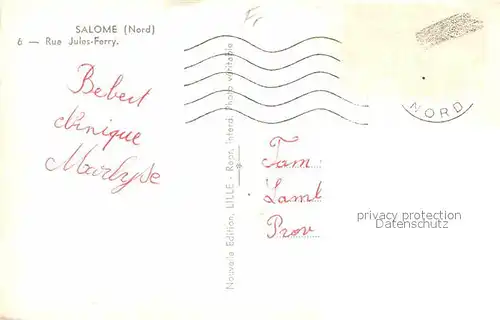 SALOME (Nord)
6 — Rue Jules-Ferry.
Fr
Bebert
clinique
Marlyse
Nouvelle Edition, LILLE - Repr. interd. Photo véritable
NORD
Tam
Lamb
Prov
privacy protection
Datenschutz